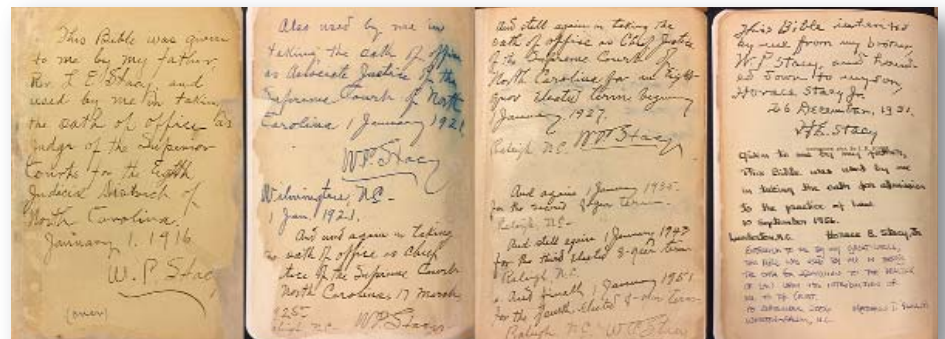 This Bible was given
to me by my father,
Rev. L. E. Stacy and
used by me in taking
the oath of office as
Judge of the Superior
Courts for the Eighth
Judicial District of
North Carolina.
January 1. 1916
W. P. Stacy
(over)
Also used by me in
taking the oath of office
as Associate Justice of the
Supreme Court of North
Carolina 1 January 1921
W. P. Stacy
Wilmington, N.C. -
1 Jan. 1921.
And used again in taking
oath of office as Chief
Justice of the Supreme Court
North Carolina, 17 March
1925.
W. P. Stacy
And still again in taking the
oath of office as Chief Justice
of the Supreme Court of
North Carolina for an eight-
year elected term beginning
1 January, 1927.
Raleigh, N.C. W. P. Stacy
And again 1 January 1935-
for the second 8-year term.
Raleigh, N.C. -
And still again 1 January 1943
for the third elected 8-year term
Raleigh, N.C.
And finally 1 January 1951
for the fourth elected 8-year term-
Raleigh N.C. W. P. Stacy
This Bible inherited
by me from my brother,
W. P. Stacy, and hand-
ed down to my son
Horace Stacy Jr.
26 December, 1951.
H E. Stacy
Given to me by my father,
This Bible was used by me
in taking the oath for admission
to the practice of law
10 September 1956.
Lumberton, N.C. Horace E. Stacy, Jr.
to me by my great-uncle,
the Bible was used by me in taking
the oath for admission to the practice
of law upon the introduction of
me to the court.
2006
Winston-Salem, N.C.